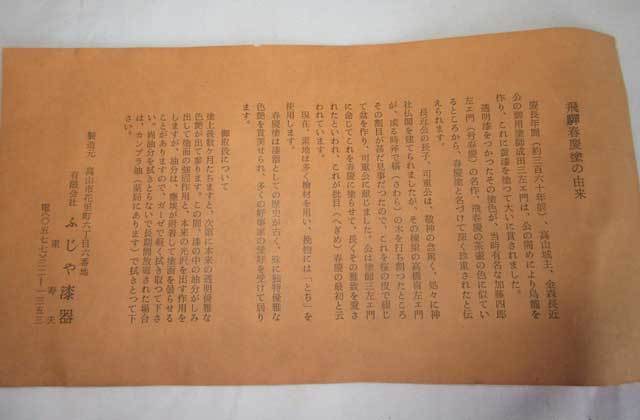 飛騨春慶塗の由来
慶長年間(約三百六十年前)、高山城主、金森長近
公の御用塗師成田三左エ門は、公の需めにより烏籠を
作り、これに黄漆を塗つて大いに賞されました。
透明漆をつかつたその塗色が、当時有名な加藤四郎
左エ門(号春慶)の名作、飛春慶の茶壷の色に似てい
るところから、春慶塗と名づけて深く珍重されたと伝
えられます。
長近公の長子、可重公は、敬神の念篤く、処々に神
社仏閣を建てられましたが、その棟梁の高橋喜左エ門
が、或る時斧で椹(さわら)の木を打ち割つたところ
その割目が甚だ見事だつたので、これを桜の皮で綴じ
て盆を作り、可重公に献じました。公は塗師三左エ門
に命じてこれを春慶に塗らせて、長くその雅致を愛さ
れたといわれ、これが批目(へぎめ)春慶の最初と云
われています。
現在、素地は多く檜材を用い、挽物には「とち」を
使用します。
春慶塗は漆器としての歴史が古く、殊に独特優雅な
色艶を賞美せられ、多くの好事家の愛好を受けて居り
ます。
御取扱について
塗上後数ケ月たちますと、次第に本来の透明優雅な
色艶が出て参ります。この間、漆の中の油分がしみ
出して塗面の強固作用と、本来の光沢を出す作用を
しますが、油分は、塵埃が附着して塗面を曇らせる
ことがありますので、ガーゼで軽く拭き取つて下さ
い。尚油分を拭きとらないで長期間放置された場合
は、カンプラ油(薬局にあります)で拭きとつて下
さい。
製造元　高山市花里町六丁目六番地
有限会社　ふじや漆器
東　寿夫
電(〇五七七)三二―一三五三